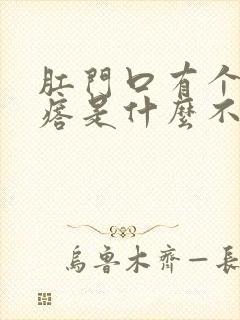 肛門口有个
痞是什麼不
烏魯木齊一長